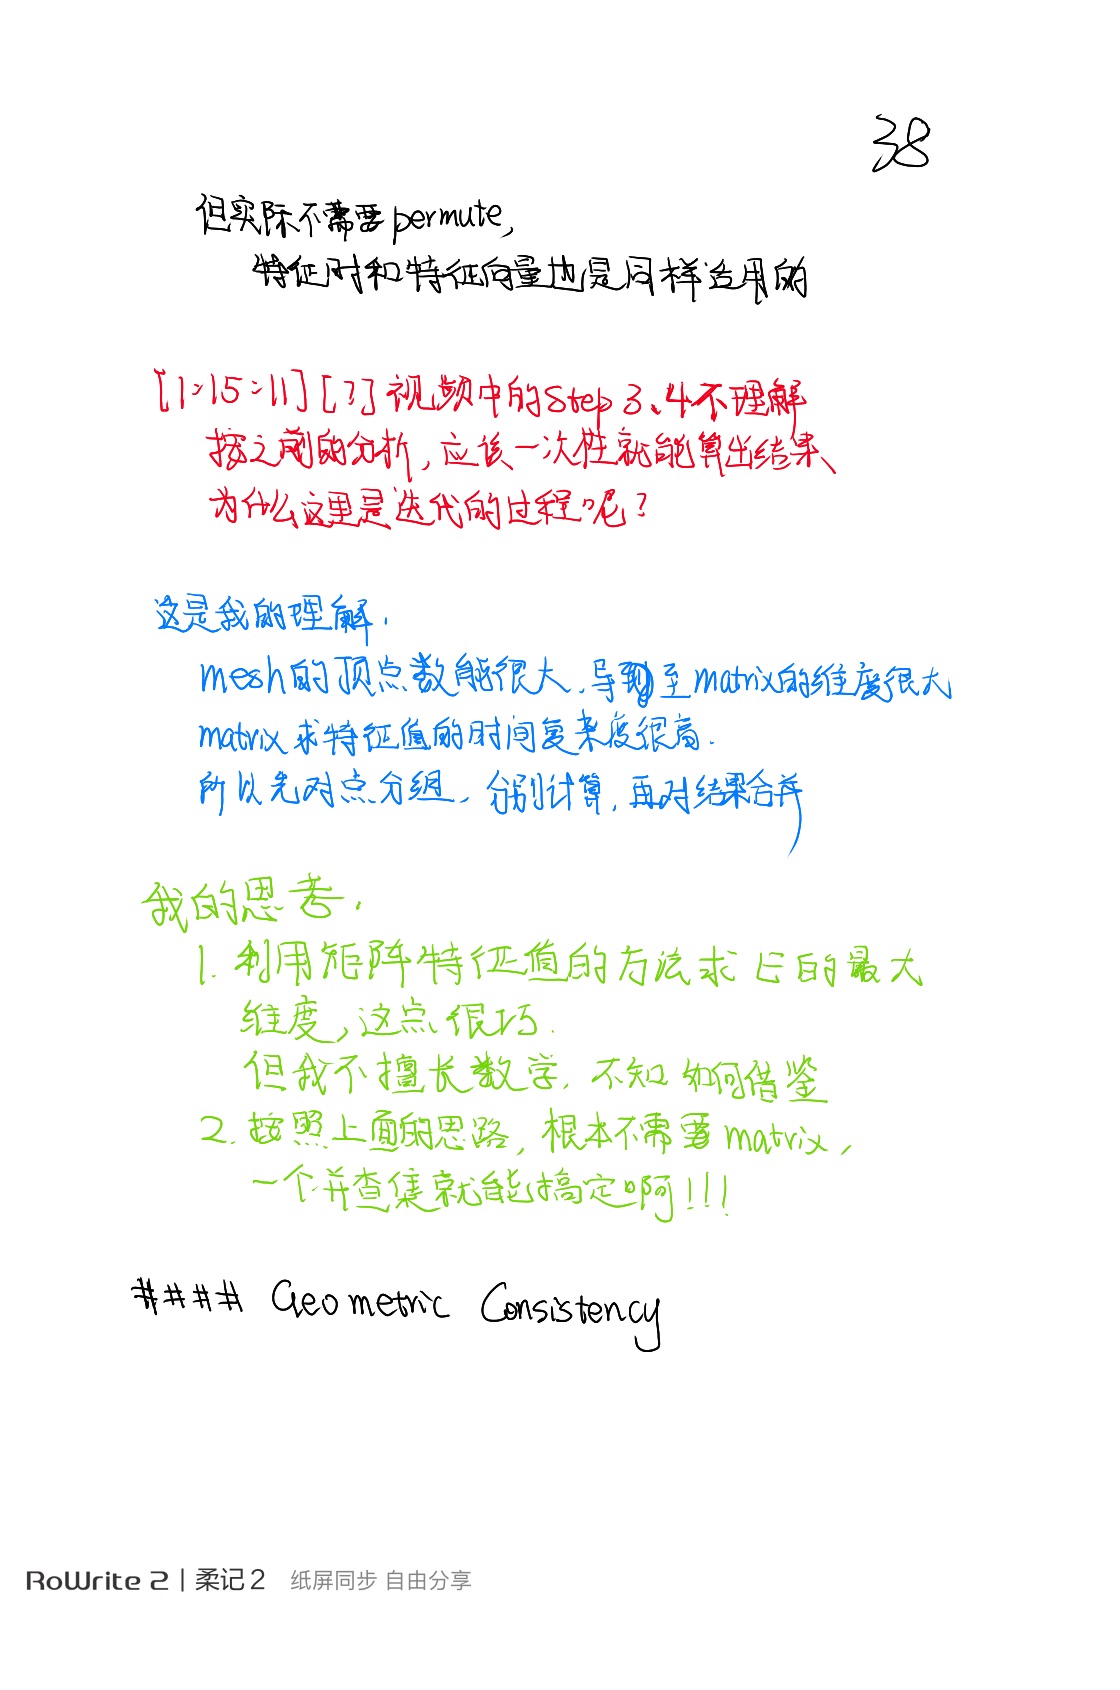 38
但实际不需要permute,
特征对和特征向量也是同样适用的
[1:15:11][?]视频中的Step 3、4不理解
按之前的分析,应该一次性就能算出结果、
为什么这里是迭代的过程呢?
这是我的理解.
mesh的顶点数能很大,导到至matrix的维度很大
matrix求特征值的时间复杂度很高.
所以先对点分组、分别计算,再对结果合并
我的思考.
1. 利用矩阵特征值的方法求 E的最大
维度,这点很巧.
但我不擅长数学.不知如何借鉴
2. 按照上面的思路,根本不需要matrix,
一个并查集就能搞定啊!!!
#### Geometric Consistency
RoWrite 2 | 柔记 2 纸屏同步 自由分享